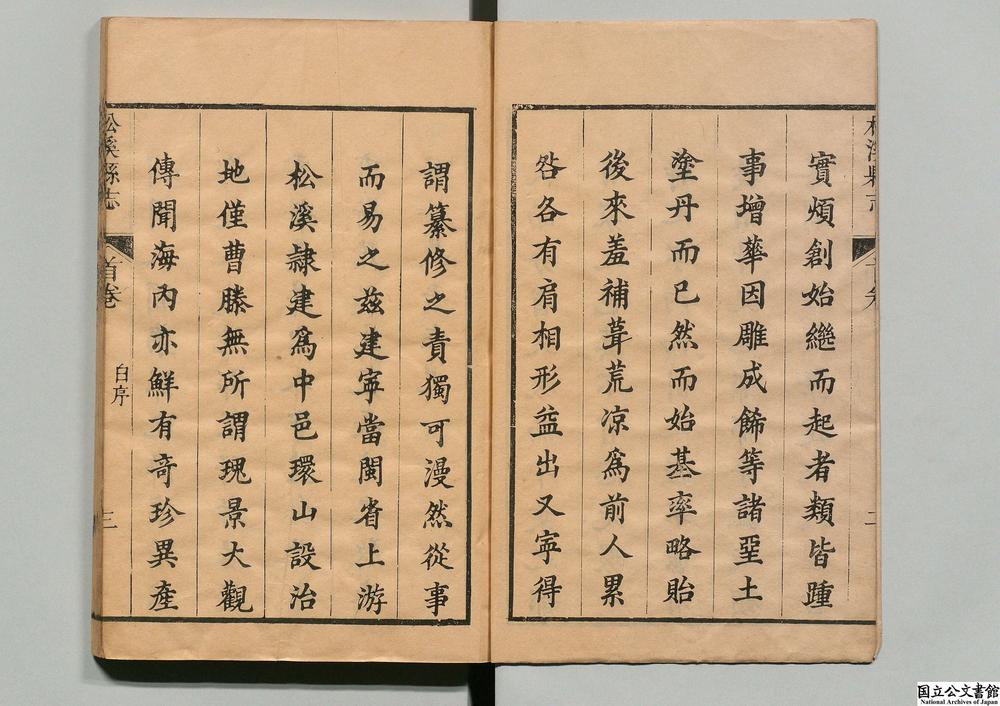 實煩創始繼而起者類皆踵
事增華因雕成餙等諸堊土
塗丹而已然而始基率略貽
後來羞補葺荒凉爲前人累
咎各有肩相形益出又寕得
謂纂修之責獨可漫然從事
而易之兹建寕當閩省上游
松溪隷建爲中邑環山設治
地僅曹滕無所謂瑰景大觀
傳聞海內亦鮮有竒珍異產
松溪縣志
首卷
自序
三
国立公文書館
National Archives of Japan